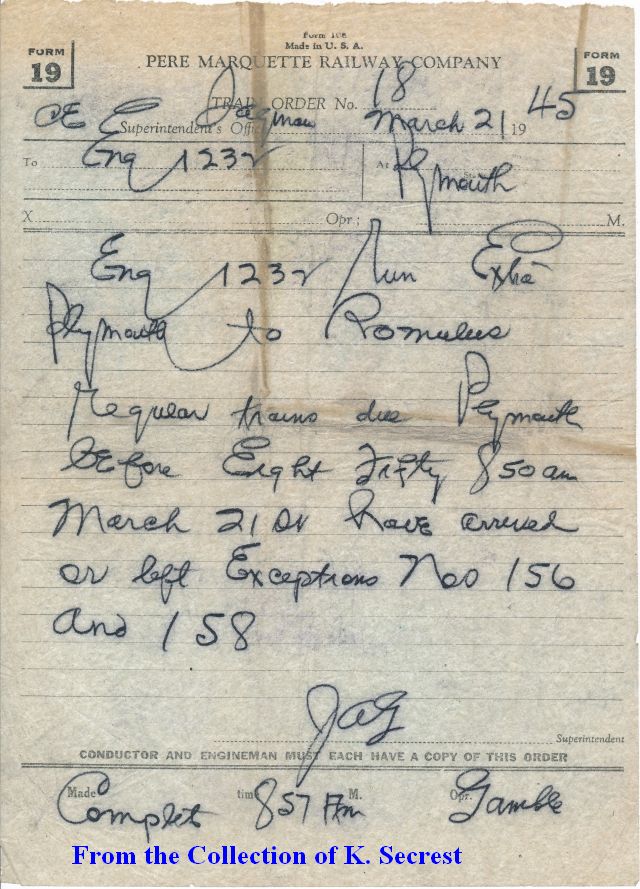 Form 108
Made in U. S. A.
FORM 19
PERE MARQUETTE RAILWAY COMPANY
FORM 19
TRAIN ORDER No. 18
Superintendent's Office Saginaw March 21 1945
To C&E Eng 1232 At Plymouth
X Opr.; M.
Eng 1232 Run Extra
Plymouth to Romulus
Regular trains due Plymouth
before Eight Fifty 850 am
March 21st have arrived
or left Exceptions Nos 156
and 158
JAG
Superintendent
CONDUCTOR AND ENGINEMAN MUST EACH HAVE A COPY OF THIS ORDER
Made Complet time 857 Am M. Opr. Gamble
From the Collection of K. Secrest